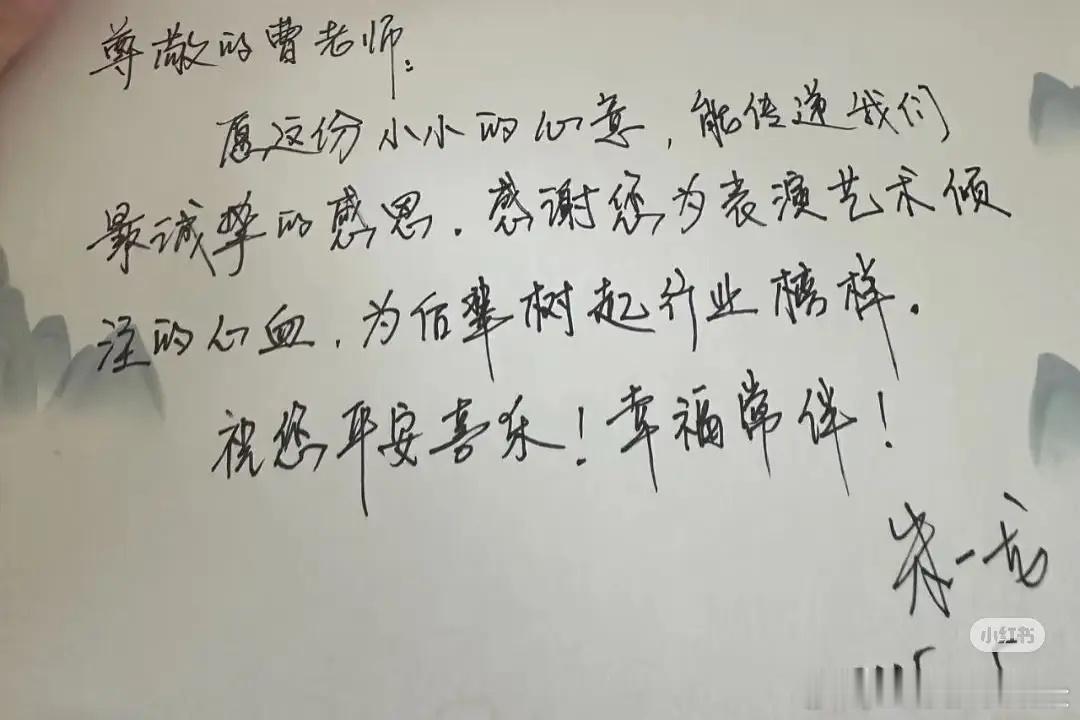 尊敬的曹老师:
愿这份小小的心意,能传递我们
最诚挚的感恩.感谢您为表演艺术倾
注的心血.为后辈树起行业榜样.
祝您平安喜乐!幸福常伴!
朱一龙
小红书